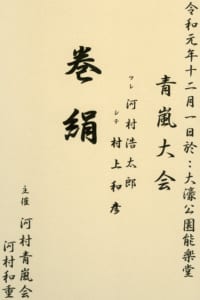 令和元年十二月一日於：大濠公園能楽堂
青嵐大会
ツレ 河村浩太郎
シテ 村上和彦
巻絹
主催 河村青嵐会
河村和重